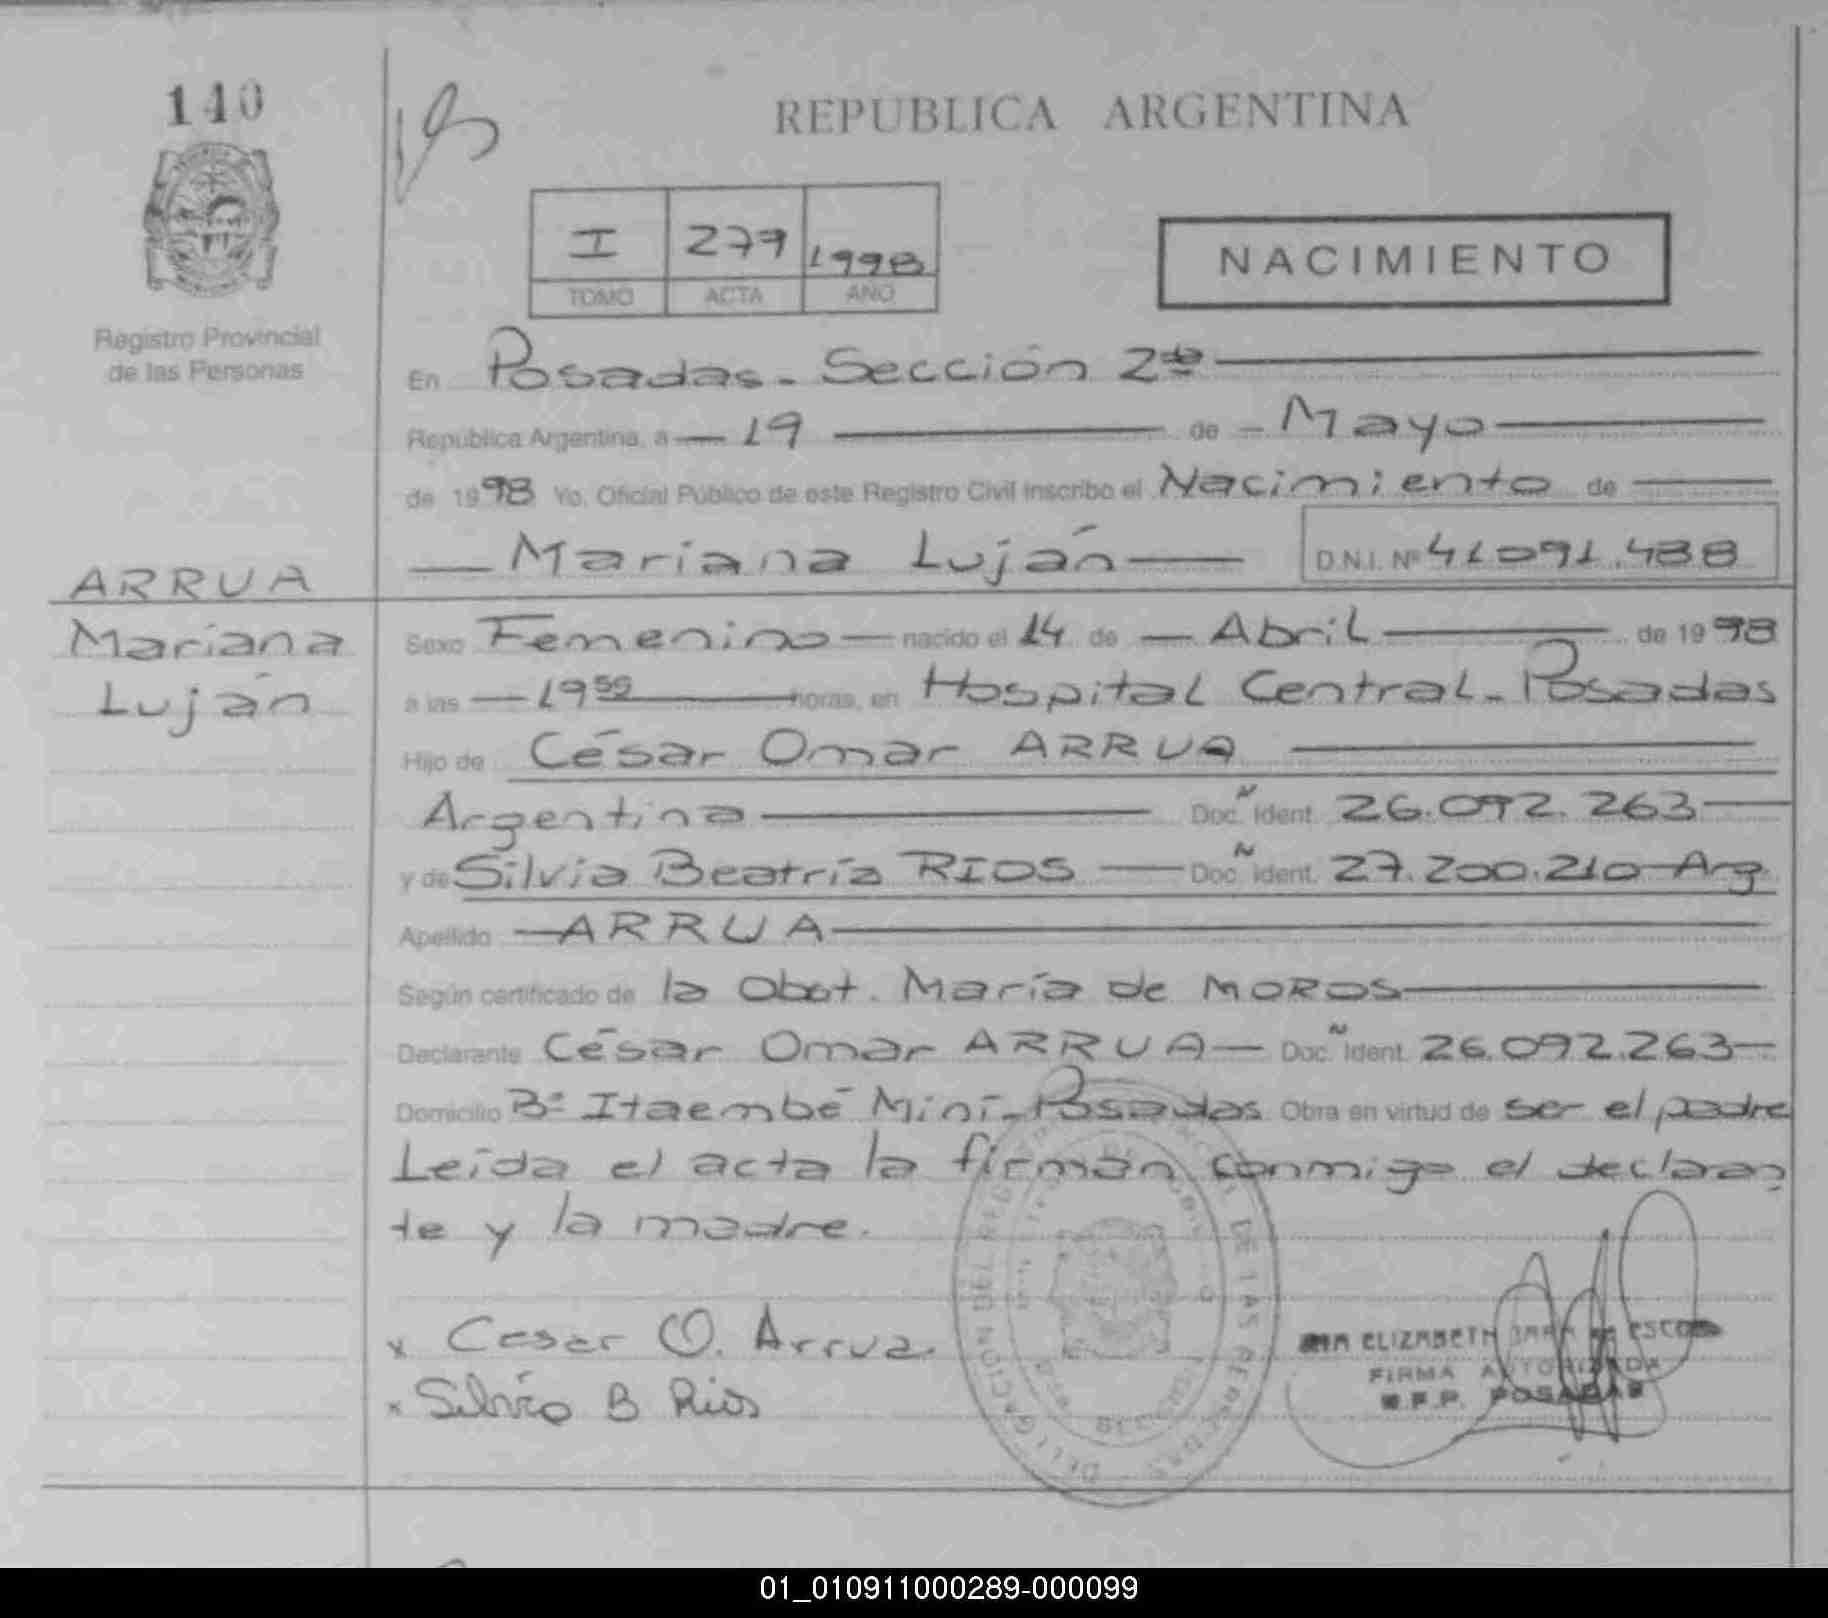 140
REPUBLICA ARGENTINA
I 279 1998
TOMO ACTA AÑO
NACIMIENTO
Registro Provincial
de las Personas
En Posadas - Sección 2da
República Argentina, a 19 de Mayo
de 1998 Yo, Oficial Público de este Registro Civil inscribo el Nacimiento de
Mariana Luján D.N.I. Nº 41.091.488
ARRUA
Mariana
Luján
Sexo Femenino nacido el 14 de Abril de 1998
a las 19 horas, en Hospital Central - Posadas
Hijo de César Omar ARRUA
Argentina Doc. Ident. 26.092.263
y de Silvia Beatríz RIOS Doc. Ident. 27.200.210 Arg
Apellido ARRUA
Según certificado de la Obst. María de MOROS
Declarante César Omar ARRUA Doc. Ident. 26.092.263
Domicilio Bº Itaembé Miní - Posadas Obra en virtud de ser el padre
Leída el acta la firman conmigo el declaran
te y la madre.
x Cesar O. Arrua
x Silvia B Rios
DELEGACION DEL DE LAS
ELIZABETH JARA de
FIRMA AUTORIZADA
R.P.P. POSADAS
01_010911000289-000099